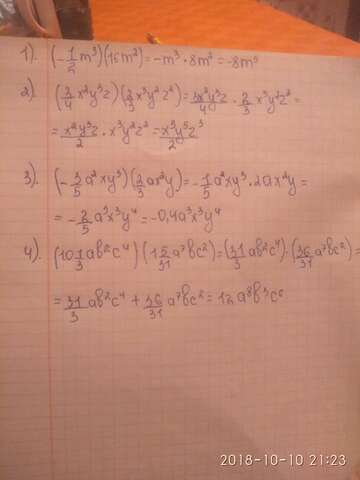 1). (-1/2 m³)(16m²) = -m³·8m² = -8m⁵
2). (3/4 x²y³z)(2/3 x³y²z²) = 3x²y³z/4 · 2/3 x³y²z² =
= x²y³z/2 · x³y²z² = x⁵y⁵z³/2
3). (-3/5 a²xy³)(2/3 ax²y) = -1/5 a²xy³·2ax²y =
= -2/5 a³x³y⁴ = -0,4a³x³y⁴
4). (10 1/3 ab²c⁴)(1 5/31 a⁷bc²) = (31/3 ab²c⁴)·(36/31 a⁷bc²) =
= 31/3 ab²c⁴ + 36/31 a⁷bc² = 12a⁸b³c⁶
2018-10-10 21:23